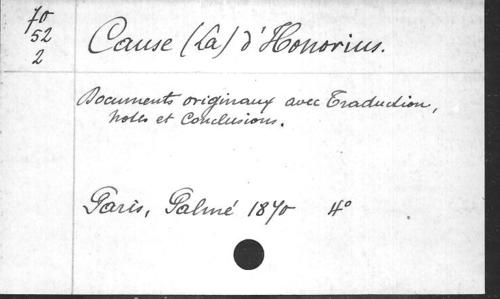 70
52
2
Cause (La) d'Honorius.
Documents originaux avec Traduction,
notes et Conclusions.
Paris, Palmé 1870 4°